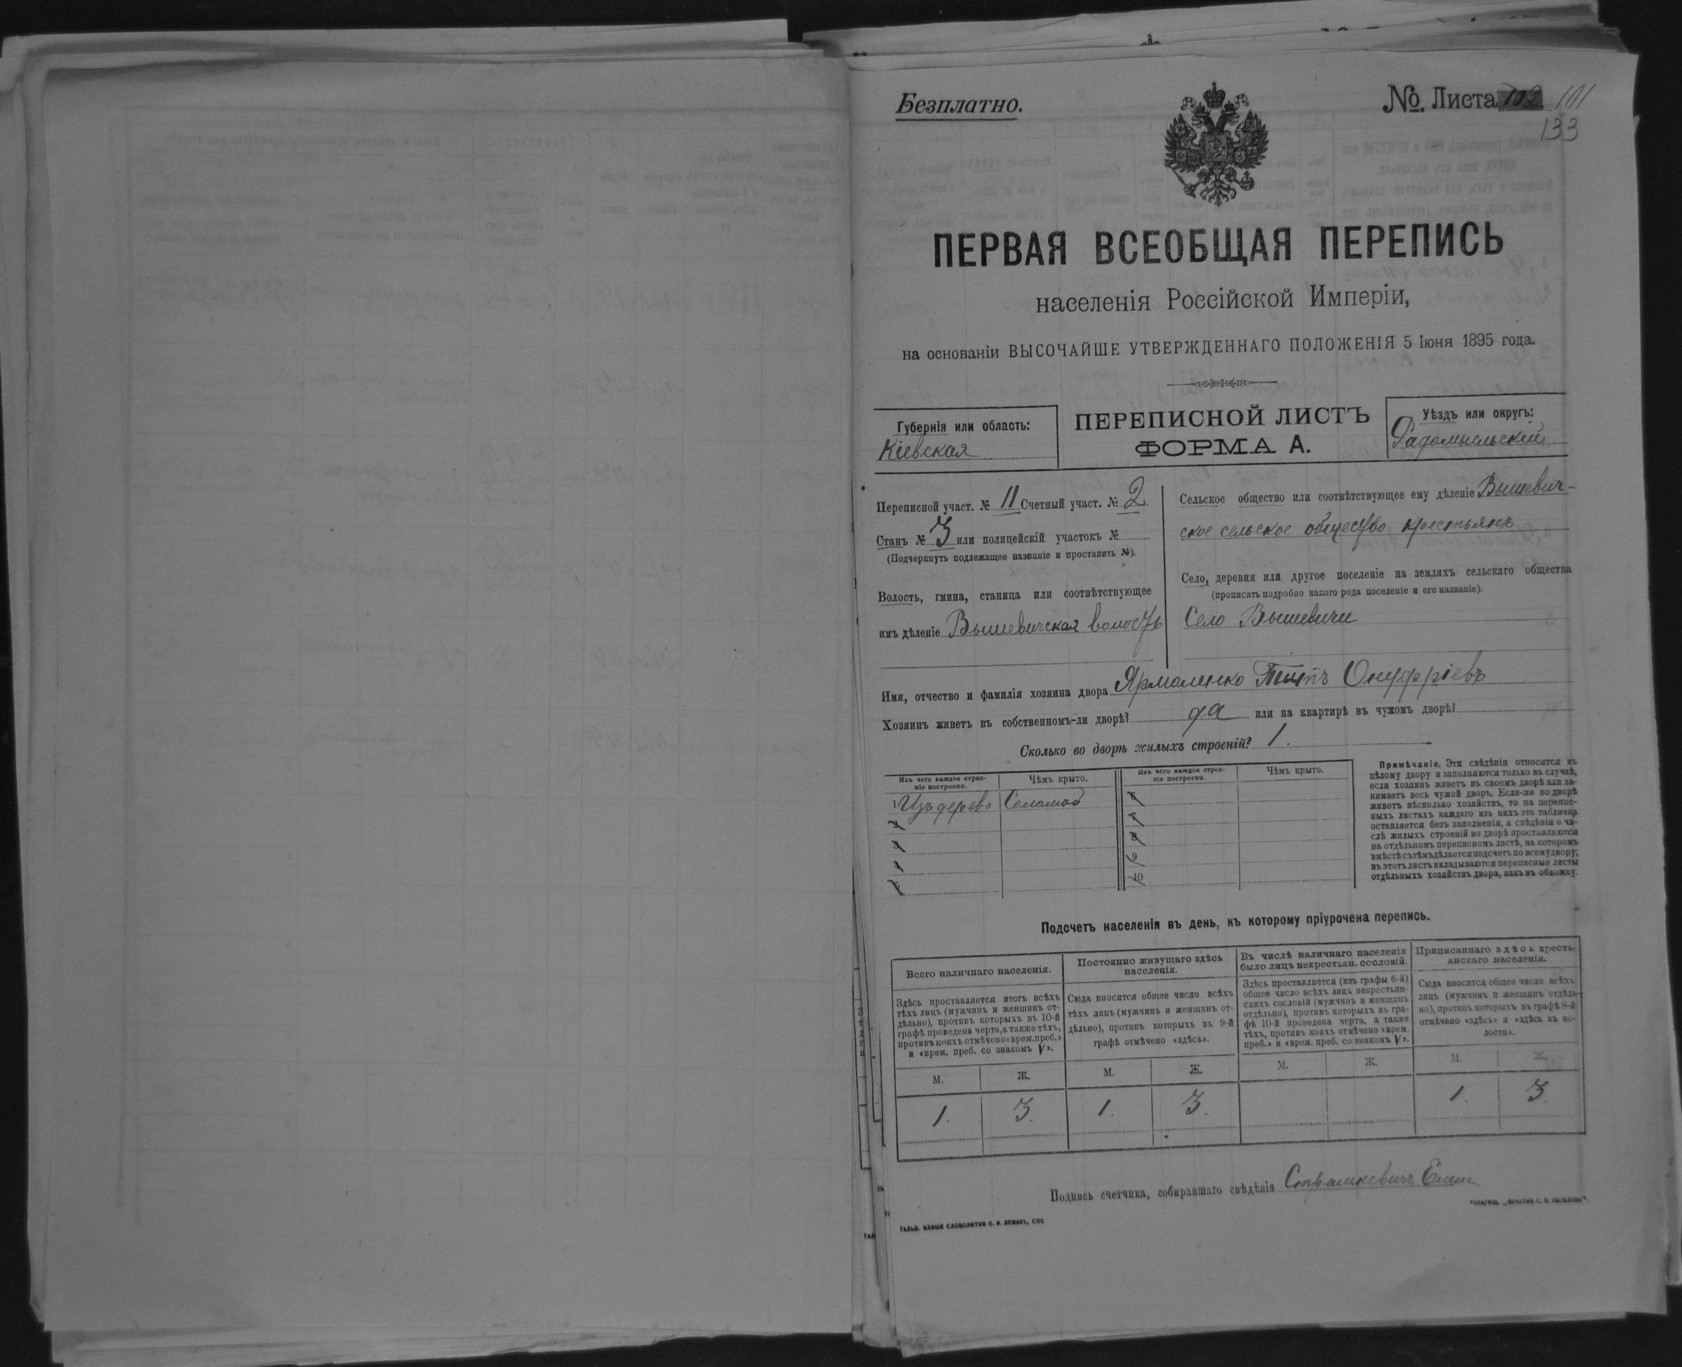 Безплатно.
№. Листа 102 101
133
ПЕРВАЯ ВСЕОБЩАЯ ПЕРЕПИСЬ
населенія Россійской Имперіи,
на основаніи ВЫСОЧАЙШЕ УТВЕРЖДЕННАГО ПОЛОЖЕНІЯ 5 Іюня 1895 года.
Губернія или область:
Кіевская
ПЕРЕПИСНОЙ ЛИСТЪ
ФОРМА А.
Уѣздъ или округъ:
Радомысльскій
Переписной участ. № 11 Счетный участ. № 2
Станъ № 3 или полицейскій участокъ №
(Подчеркнуть подлежащее названіе и проставить №).
Волость, гмина, станица или соотвѣтствующее
имъ дѣленіе Вышевичская волость
Сельское общество или соотвѣтствующее ему дѣленіе Вышевич-
ское сельское общество крестьянъ
Село, деревня или другое поселеніе на земляхъ сельскаго общества
(прописать подробно какого рода поселеніе и его названіе).
Село Вышевичи
Имя, отчество и фамилія хозяина двора Ярмоленко Титъ Онуфріевъ
Хозяинъ живетъ въ собственномъ-ли дворѣ? да или на квартирѣ въ чужомъ дворѣ?
Сколько во дворѣ жилыхъ строеній? 1.
Изъ чего каждое строе-
ніе построено.
Чѣмъ крыто.
Изъ чего каждое строе-
ніе построено.
Чѣмъ крыто.
1 Изъ дерева Соломой
10
Примѣчаніе. Эти свѣдѣнія относятся къ
цѣлому двору и заполняются только въ случаѣ,
если хозяинъ живетъ въ своемъ дворѣ или за-
нимаетъ весь чужой дворъ. Если-же во дворѣ
живетъ нѣсколько хозяйствъ, то на перепис-
ныхъ листахъ каждаго изъ нихъ эта табличка
оставляется безъ заполненія, а свѣдѣнія о чи-
слѣ жилыхъ строеній во дворѣ проставляются
на отдѣльномъ переписномъ листѣ, на которомъ
вмѣстѣ съ тѣмъ дѣлается подсчетъ по всему двору;
въ этотъ листъ вкладываются переписные листы
отдѣльныхъ хозяйствъ двора, какъ въ обложку.
Подсчетъ населенія въ день, къ которому пріурочена перепись.
Всего наличнаго населенія.
Здѣсь проставляется итогъ всѣхъ
тѣхъ лицъ (мужчинъ и женщинъ от-
дѣльно), противъ которыхъ въ 10-й
графѣ проведена черта, а также тѣхъ,
противъ коихъ отмѣчено «врем. преб.»
и «врем. преб. со знакомъ V».
Постоянно живущаго здѣсь
населенія.
Сюда вносится общее число всѣхъ
тѣхъ лицъ (мужчинъ и женщинъ от-
дѣльно), противъ которыхъ въ 9-й
графѣ отмѣчено «здѣсь».
Въ числѣ наличнаго населенія
было лицъ некрестьян. сословій.
Здѣсь проставляется (изъ графы 6-й)
общее число всѣхъ лицъ некрестьян-
скихъ сословій (мужчинъ и женщинъ
отдѣльно), противъ которыхъ въ гра-
фѣ 10-й проведена черта, а также
тѣхъ, противъ коихъ отмѣчено «врем.
преб.» и «врем. преб. со знакомъ V».
Приписаннаго здѣсь кресть-
янскаго населенія.
Сюда вносится общее число всѣхъ
лицъ (мужчинъ и женщинъ отдѣль-
но), противъ которыхъ въ графѣ 8-й
отмѣчено «здѣсь» и «здѣсь въ во-
лости».
М. Ж. М. Ж. М. Ж. М. Ж.
1. 3. 1. 3. 1. 3.
Подпись счетчика, собиравшаго свѣдѣнія